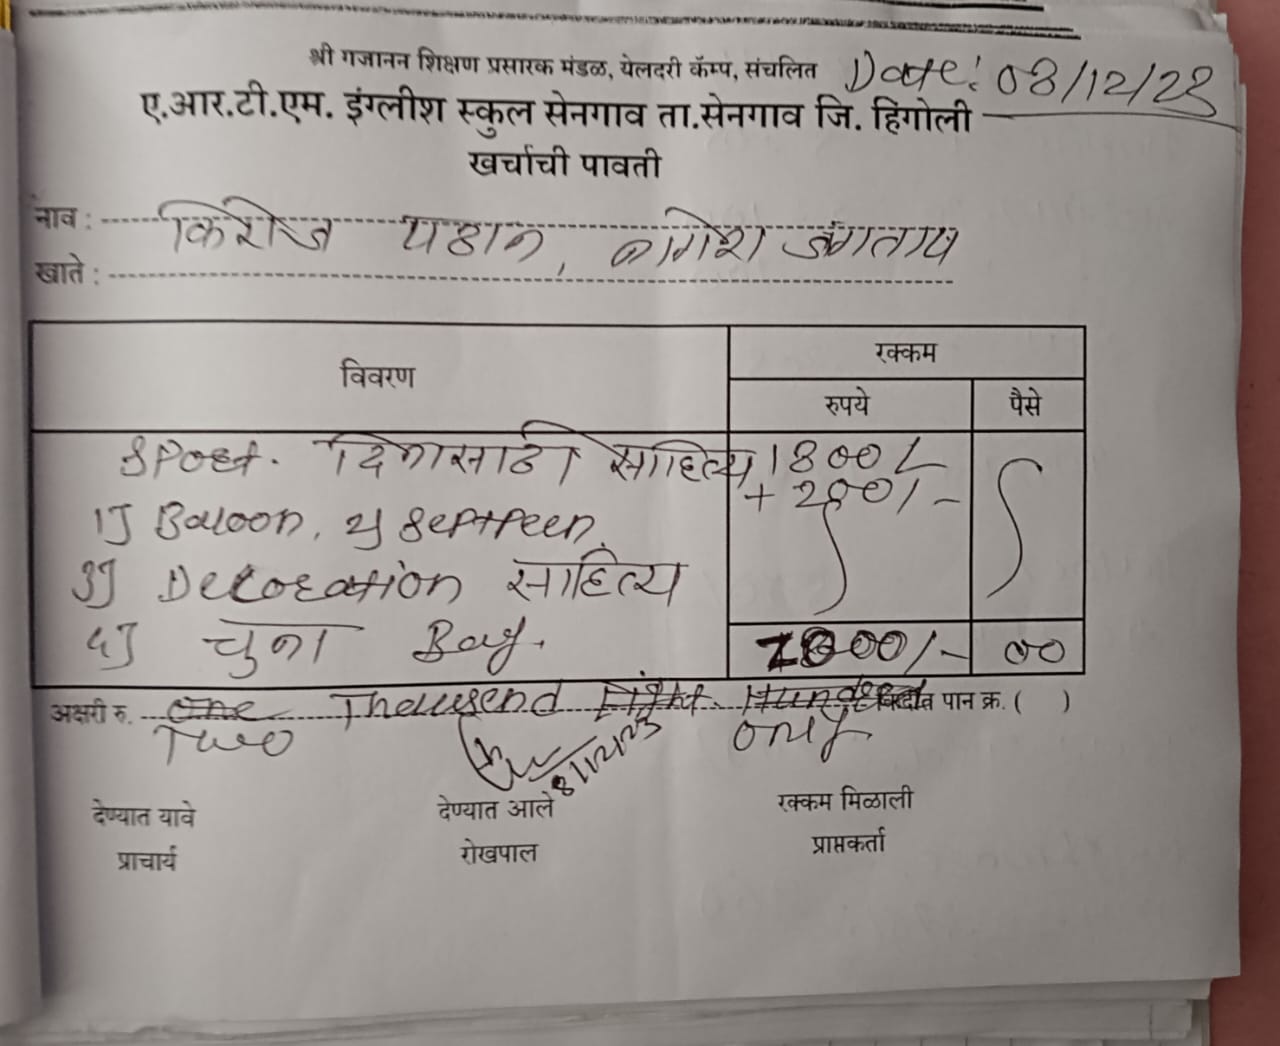 श्री गजानन शिक्षण प्रसारक मंडळ, येलदरी कॅम्प, संचलित Date: 08/12/23
ए.आर.टी.एम. इंग्लीश स्कुल सेनगाव ता.सेनगाव जि. हिंगोली
खर्चाची पावती
नाव : पठाण, नागेश जगताप
खाते :
विवरण रक्कम
रुपये पैसे
Sport. दिनासाठी साहित्य 1800/-
+ 200/-
1] Baloon, 2]
3] Decoration साहित्य
4] चुना Bag.
00
अक्षरी रु. One Thausend Eight Hundred किर्दीत पान क्र. ( )
Two only
8/12/23
देण्यात यावे देण्यात आले रक्कम मिळाली
प्राचार्य रोखपाल प्राप्तकर्ता